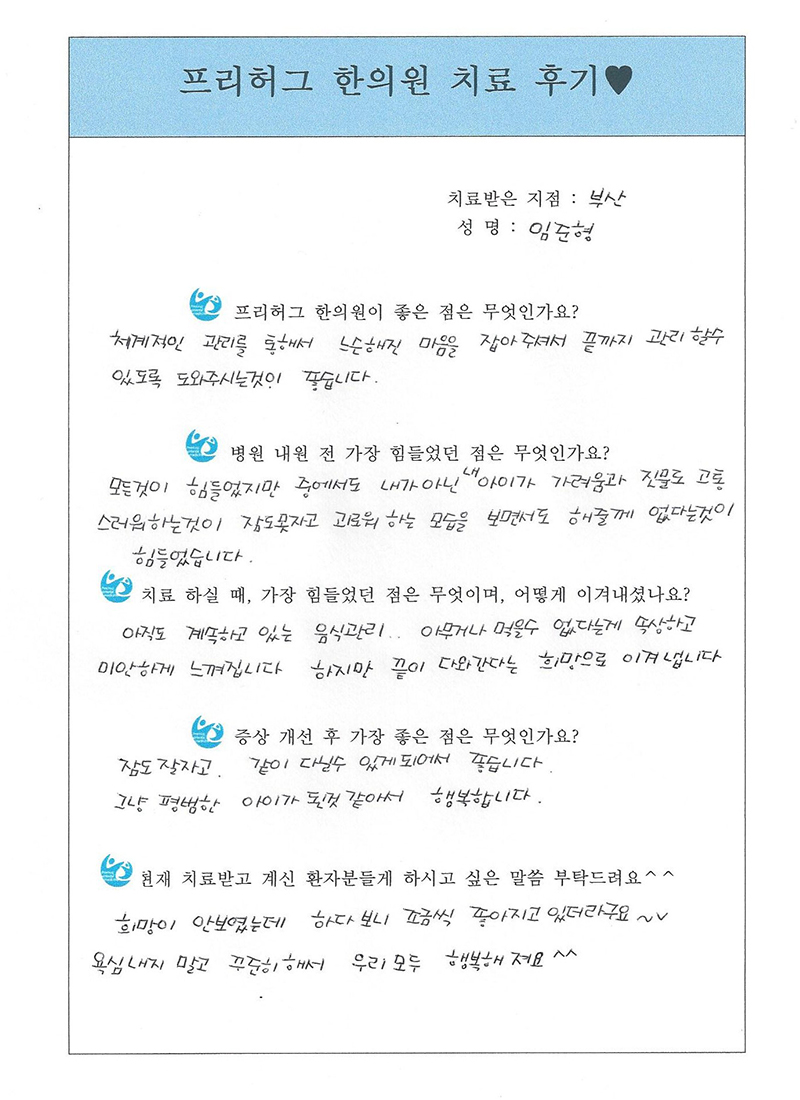 프리허그 한의원 치료 후기♥
치료받은 지점 : 부산
성 명 : 임준형
프리허그 한의원이 좋은 점은 무엇인가요?
체계적인 관리를 통해서 느슨해진 마음을 잡아주셔서 끝까지 관리할수
있도록 도와주시는것이 좋습니다.
병원 내원 전 가장 힘들었던 점은 무엇인가요?
모든것이 힘들었지만 중에서도 내가아닌 내아이가 가려움과 진물로 고통
스러워하는것이 잠도못자고 괴로워하는 모습을 보면서도 해줄께 없다는것이
힘들었습니다.
치료 하실 때, 가장 힘들었던 점은 무엇이며, 어떻게 이겨내셨나요?
아직도 계속하고 있는 음식관리.. 아무거나 먹을수 없다는게 속상하고
미안하게 느껴집니다 하지만 끝이 다와간다는 희망으로 이겨냅니다
증상 개선 후 가장 좋은 점은 무엇인가요?
잠도잘자고. 같이 다닐수 있게되어서 좋습니다.
그냥 평범한 아이가 된것같아서 행복합니다.
현재 치료받고 계신 환자분들게 하시고 싶은 말씀 부탁드려요^^
희망이 안보였는데 하다보니 조금씩 좋아지고 있더라구요~v
욕심내지 말고 꾸준히해서 우리모두 행복해져요^^